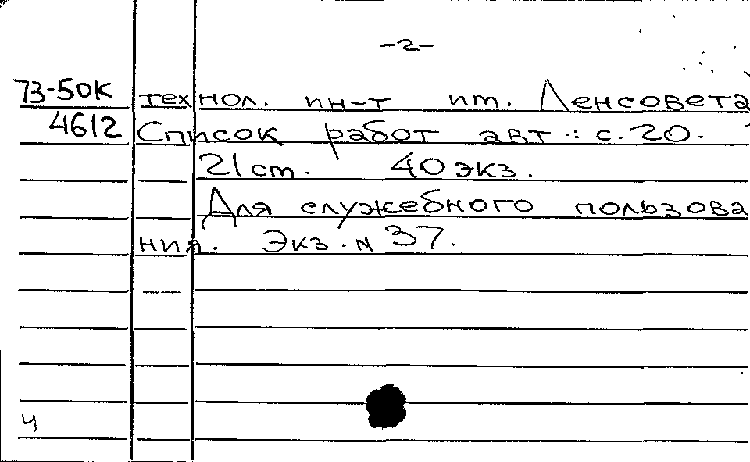 -2-
73-50К технол. ин-т им. Ленсовета
4612 Список работ авт.: с. 20.
21 ст. 40 экз.
Для служебного пользова
ния. Экз. N 37.
ч